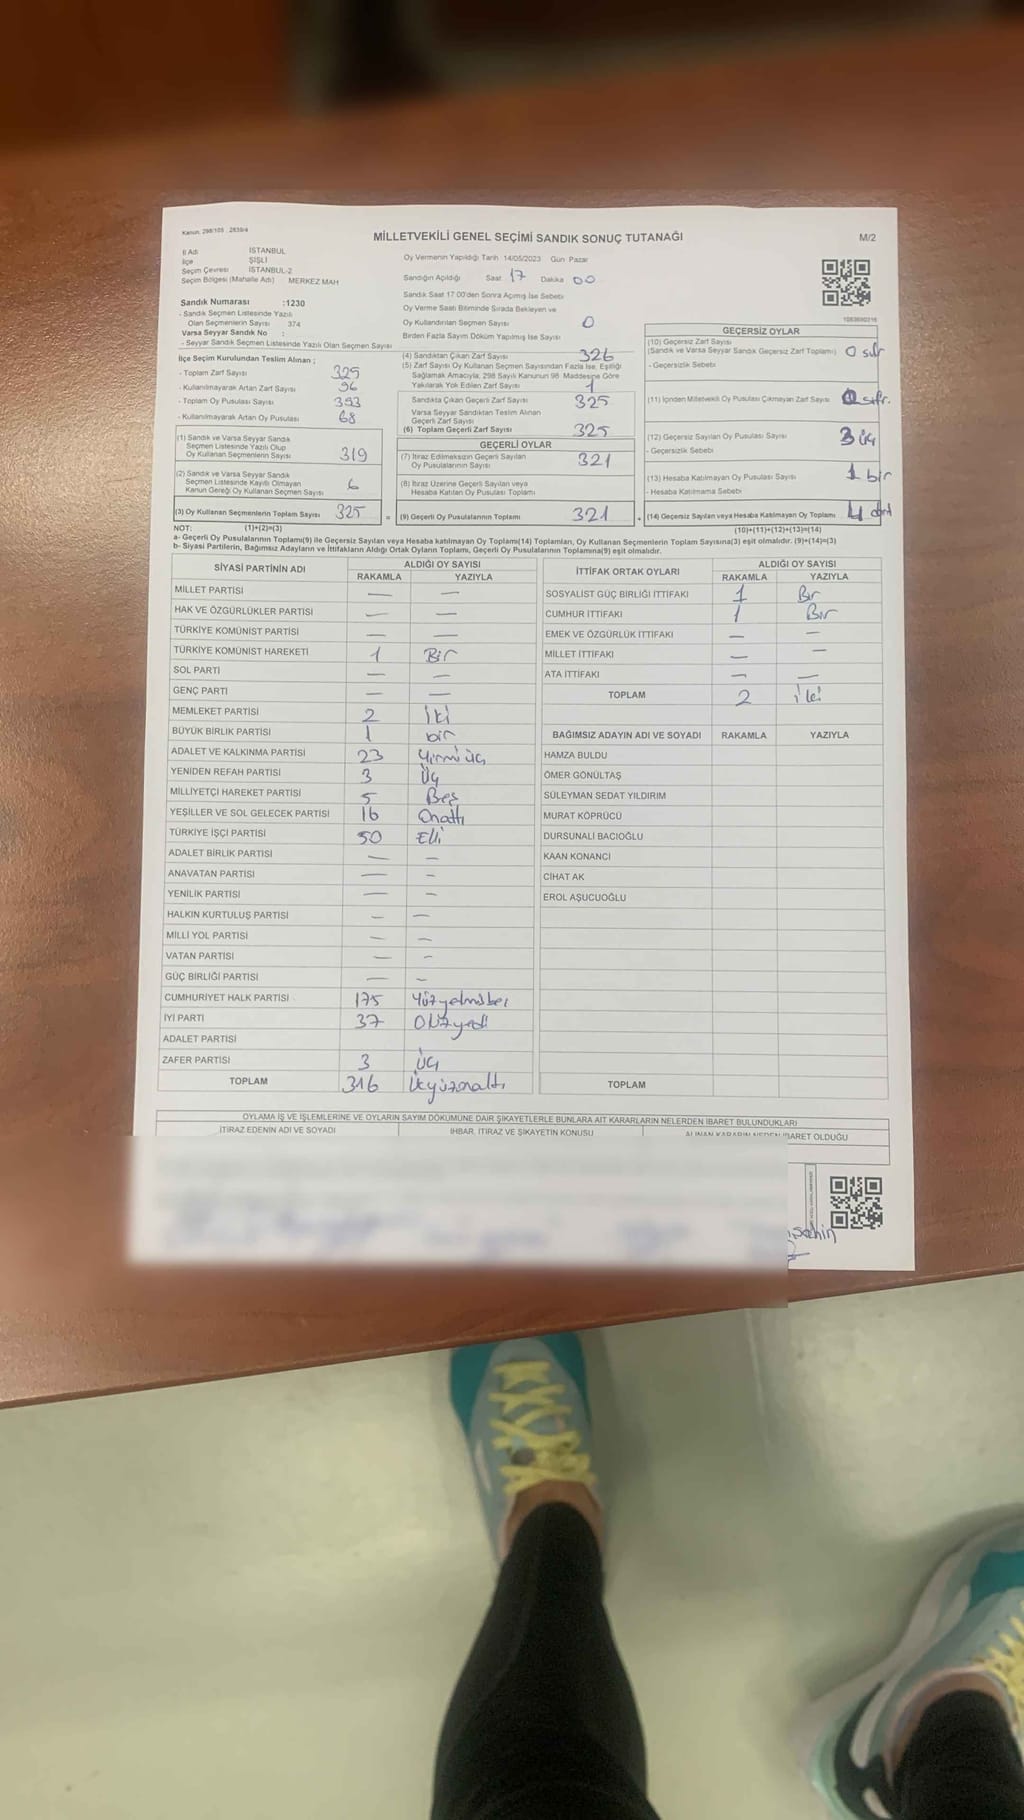 Kanun. 298/105 , 2839/4
MİLLETVEKİLİ GENEL SEÇİMİ SANDIK SONUÇ TUTANAĞI
M/2
İl Adı İSTANBUL
İlçe ŞİŞLİ
Seçim Çevresi İSTANBUL-2
Seçim Bölgesi (Mahalle Adı) MERKEZ MAH
Sandık Numarası :1230
- Sandık Seçmen Listesinde Yazılı
Olan Seçmenlerin Sayısı 374
Varsa Seyyar Sandık No :
- Seyyar Sandık Seçmen Listesinde Yazılı Olan Seçmen Sayısı
Oy Vermenin Yapıldığı Tarih 14/05/2023 Gün Pazar
Sandığın Açıldığı Saat 17 Dakika 00
Sandık Saat 17:00'den Sonra Açılmış İse Sebebi
Oy Verme Saati Bitiminde Sırada Bekleyen ve
Oy Kullandırılan Seçmen Sayısı 0
Birden Fazla Sayım Döküm Yapılmış İse Sayısı
İlçe Seçim Kurulundan Teslim Alınan ;
- Toplam Zarf Sayısı
- Kullanılmayarak Artan Zarf Sayısı 96
- Toplam Oy Pusulası Sayısı 393
- Kullanılmayarak Artan Oy Pusulası 68
(1) Sandık ve Varsa Seyyar Sandık
Seçmen Listesinde Yazılı Olup
Oy Kullanan Seçmenlerin Sayısı 319
(2) Sandık ve Varsa Seyyar Sandık
Seçmen Listesinde Kayıtlı Olmayan
Kanun Gereği Oy Kullanan Seçmen Sayısı 6
(3) Oy Kullanan Seçmenlerin Toplam Sayısı 325 =
(1)+(2)=(3)
(4) Sandıktan Çıkan Zarf Sayısı 326
(5) Zarf Sayısı Oy Kullanan Seçmen Sayısından Fazla İse, Eşitliği
Sağlamak Amacıyla; 298 Sayılı Kanunun 98. Maddesine Göre
Yakılarak Yok Edilen Zarf Sayısı 1
Sandıkta Çıkan Geçerli Zarf Sayısı 325
Varsa Seyyar Sandıktan Teslim Alınan
Geçerli Zarf Sayısı
(6) Toplam Geçerli Zarf Sayısı 325
GEÇERLİ OYLAR
(7) İtiraz Edilmeksizin Geçerli Sayılan
Oy Pusulalarının Sayısı 321
(8) İtiraz Üzerine Geçerli Sayılan veya
Hesaba Katılan Oy Pusulası Toplamı
(9) Geçerli Oy Pusulalarının Toplamı 321 +
GEÇERSİZ OYLAR
(10) Geçersiz Zarf Sayısı
(Sandık ve Varsa Seyyar Sandık Geçersiz Zarf Toplamı) 0 sıfır
- Geçersizlik Sebebi
(11) İçinden Milletvekili Oy Pusulası Çıkmayan Zarf Sayısı 0 sıfır.
(12) Geçersiz Sayılan Oy Pusulası Sayısı 3 üç
- Geçersizlik Sebebi
(13) Hesaba Katılmayan Oy Pusulası Sayısı 1 bir
- Hesaba Katılmama Sebebi
(14) Geçersiz Sayılan veya Hesaba Katılmayan Oy Pusulası Toplamı 4 dört
(10)+(11)+(12)+(13)=(14)
NOT:
a- Geçerli Oy Pusulalarının Toplamı(9) ile Geçersiz Sayılan veya Hesaba katılmayan Oy Toplamı(14) Toplamları, Oy Kullanan Seçmenlerin Toplam Sayısına(3) eşit olmalıdır. (9)+(14)=(3)
b- Siyasi Partilerin, Bağımsız Adayların ve İttifakların Aldığı Ortak Oyların Toplamı, Geçerli Oy Pusulalarının Toplamına(9) eşit olmalıdır.
SİYASİ PARTİNİN ADI ALDIĞI OY SAYISI
RAKAMLA YAZIYLA
MİLLET PARTİSİ — —
HAK VE ÖZGÜRLÜKLER PARTİSİ — —
TÜRKİYE KOMÜNİST PARTİSİ — —
TÜRKİYE KOMÜNİST HAREKETİ 1 Bir
SOL PARTİ — —
GENÇ PARTİ — —
MEMLEKET PARTİSİ 2 İki
BÜYÜK BİRLİK PARTİSİ 1 bir
ADALET VE KALKINMA PARTİSİ 23 Yirmi üç
YENİDEN REFAH PARTİSİ 3 Üç
MİLLİYETÇİ HAREKET PARTİSİ 5 Beş
YEŞİLLER VE SOL GELECEK PARTİSİ 16 Onaltı
TÜRKİYE İŞÇİ PARTİSİ 50 Elli
ADALET BİRLİK PARTİSİ — —
ANAVATAN PARTİSİ — —
YENİLİK PARTİSİ — —
HALKIN KURTULUŞ PARTİSİ — —
MİLLİ YOL PARTİSİ — —
VATAN PARTİSİ — —
GÜÇ BİRLİĞİ PARTİSİ — —
CUMHURİYET HALK PARTİSİ 175 Yüzyetmişbeş
İYİ PARTİ 37 Otuzyedi
ADALET PARTİSİ
ZAFER PARTİSİ 3 Üç
TOPLAM 316 Üçyüzonaltı
İTTİFAK ORTAK OYLARI ALDIĞI OY SAYISI
RAKAMLA YAZIYLA
SOSYALİST GÜÇ BİRLİĞİ İTTİFAKI 1 Bir
CUMHUR İTTİFAKI 1 Bir
EMEK VE ÖZGÜRLÜK İTTİFAKI — —
MİLLET İTTİFAKI — —
ATA İTTİFAKI — —
TOPLAM 2 iki
BAĞIMSIZ ADAYIN ADI VE SOYADI RAKAMLA YAZIYLA
HAMZA BULDU
ÖMER GÖNÜLTAŞ
SÜLEYMAN SEDAT YILDIRIM
MURAT KÖPRÜCÜ
DURSUNALİ BACIOĞLU
KAAN KONANCI
CİHAT AK
EROL AŞUCUOĞLU
TOPLAM
OYLAMA İŞ VE İŞLEMLERİNE VE OYLARIN SAYIM DÖKÜMÜNE DAİR ŞİKAYETLERLE BUNLARA AİT KARARLARIN NELERDEN İBARET BULUNDUKLARI
İTİRAZ EDENİN ADI VE SOYADI İHBAR, İTİRAZ VE ŞİKAYETİN KONUSU ALINAN KARARIN NEDEN İBARET OLDUĞU